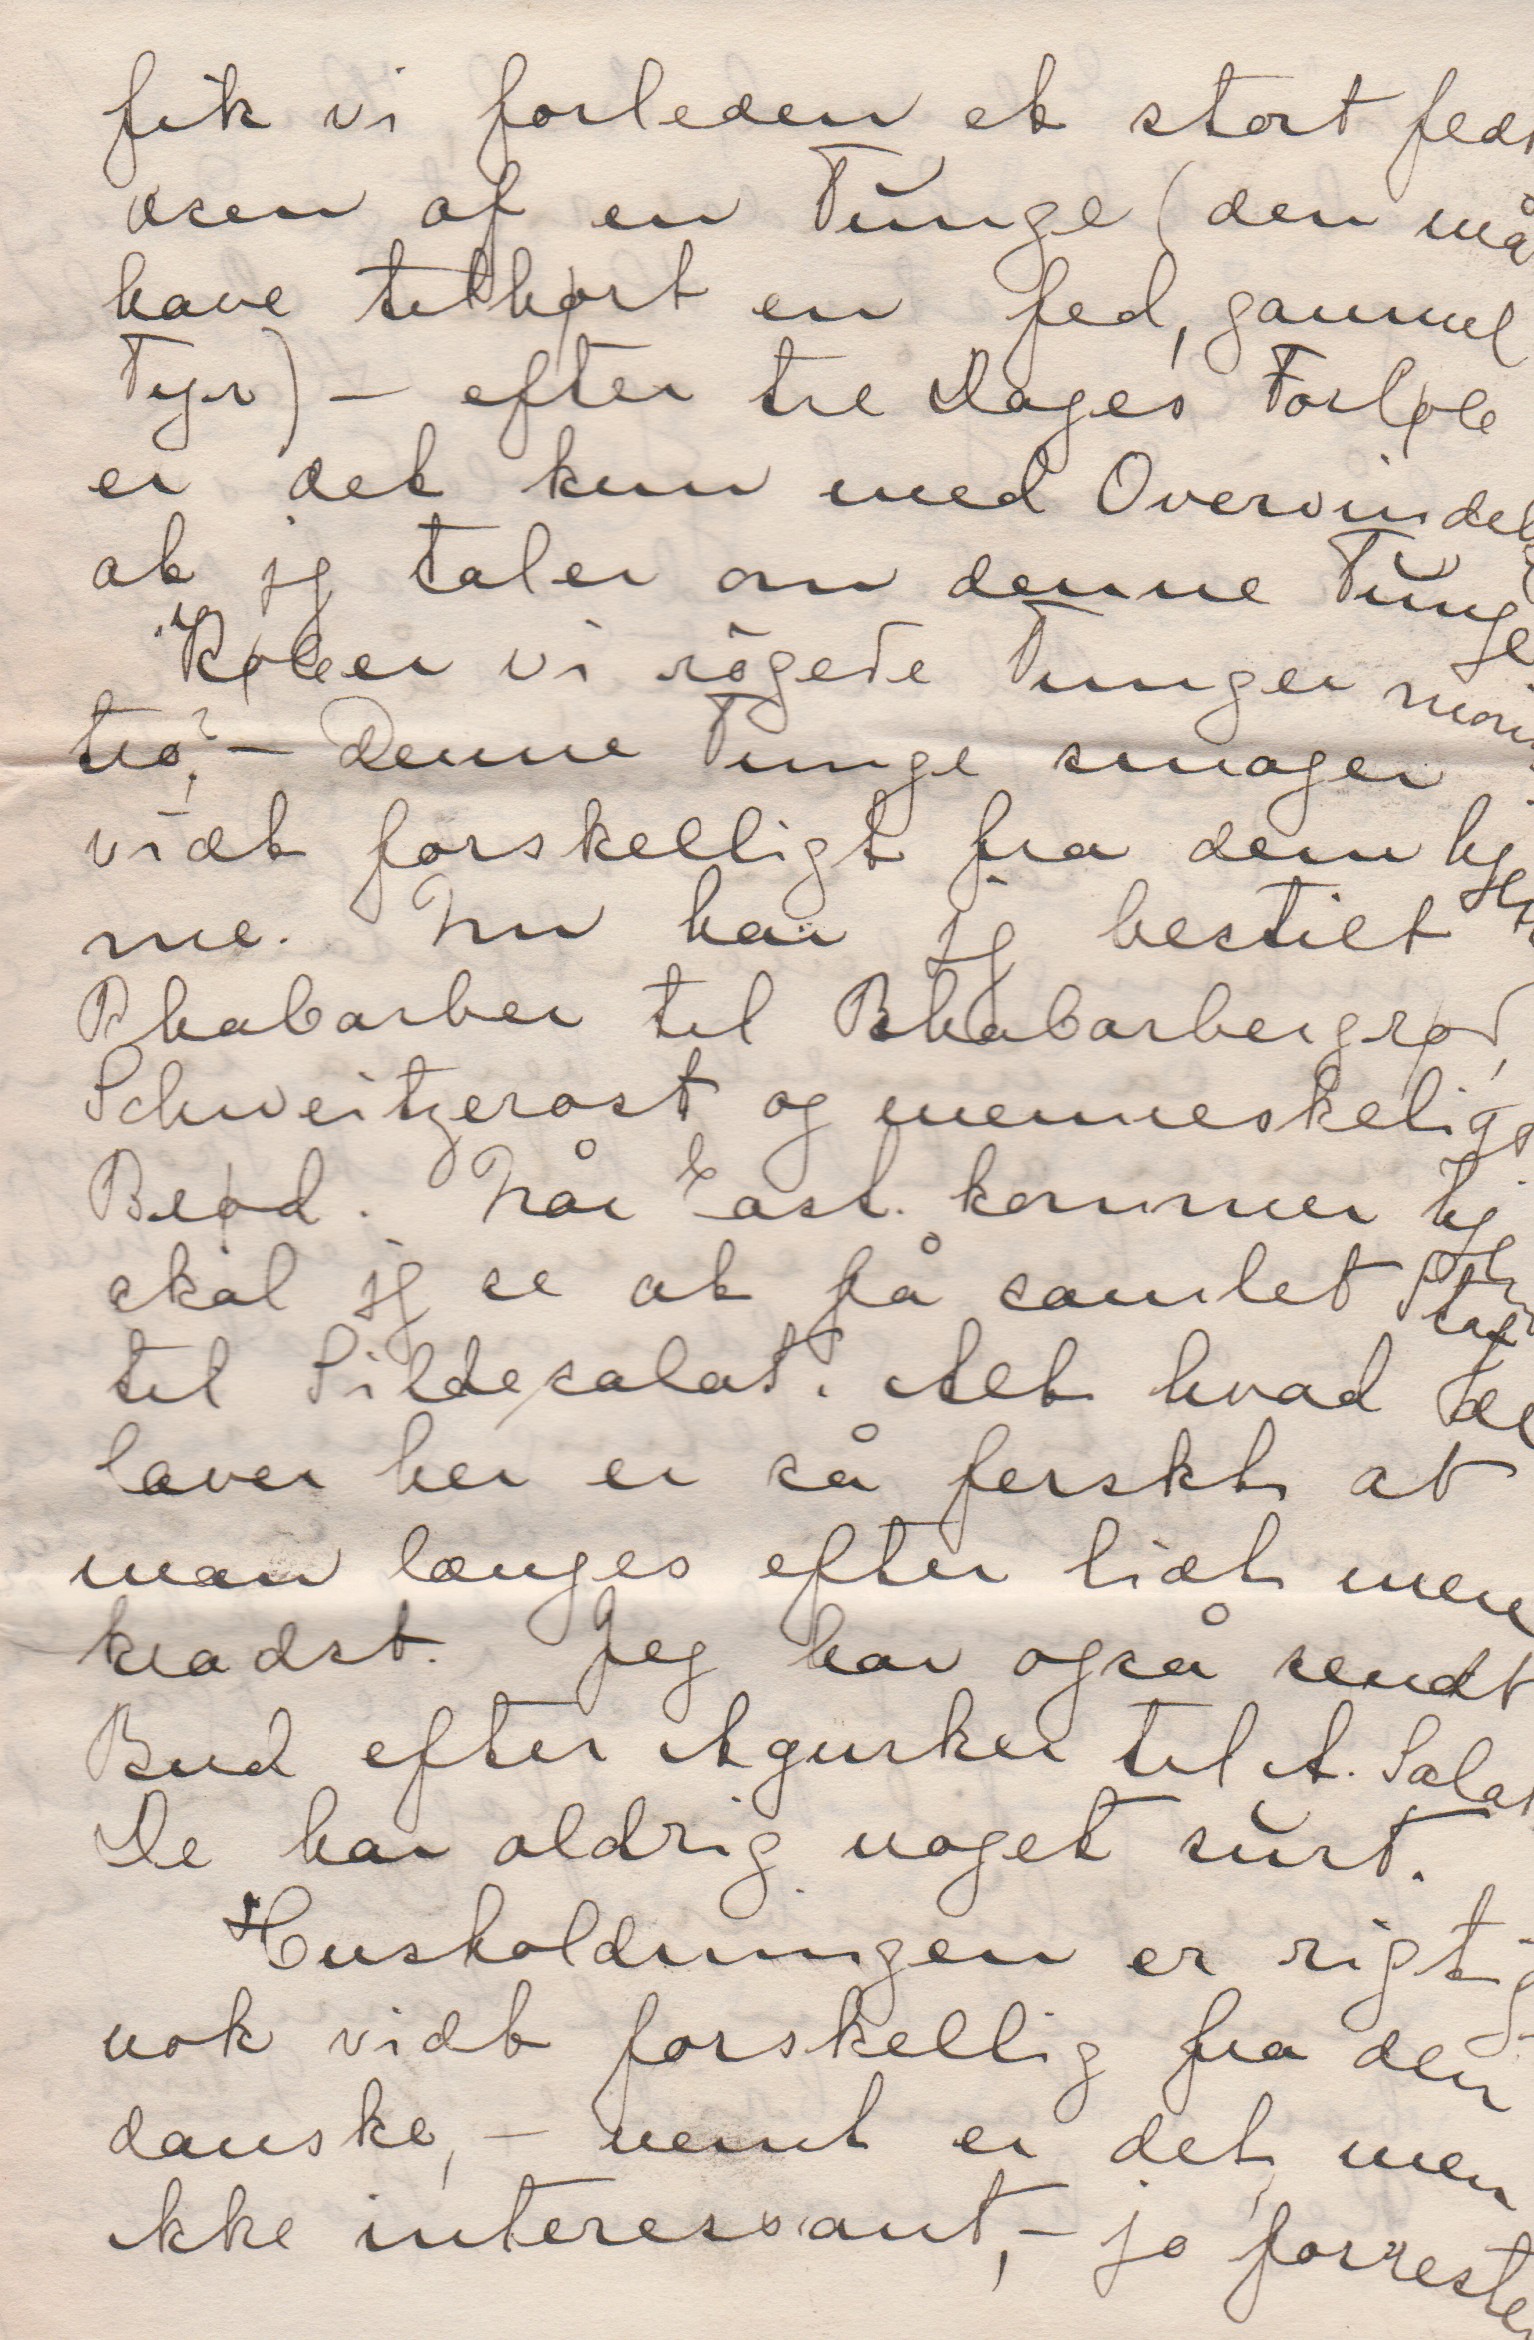 fik vi forleden et stort fedt
æsen af en Tunge (den må
have tilhørt en fed, gammel
Tyr) – efter tre Dages Forløb
er det kun med Overvindelse
at jeg taler om denne Tunge
"Kober vi røgede Tunger mon
tro? – Denne Tunge smager
vidt forskelligt fra dem hjem
me. Nu har jeg bestilt
Rhabarber til Rhabarbergrød,
Schweitzerost og menneskeligt
Brød. Når East. kommer hjem
skal jeg se at få samlet
til Sildesalat. Alt hvad de
laver her er så ferskt at
man længes efter lidt mere
kradst. Jeg har også sendt
Bud efter Agurker til A. Salat
De har aldrig noget surt.
Husholdningen er rigtig
nok vidt forskellig fra den
danske, – nemt er det, men
ikke interessant, – jo forresten